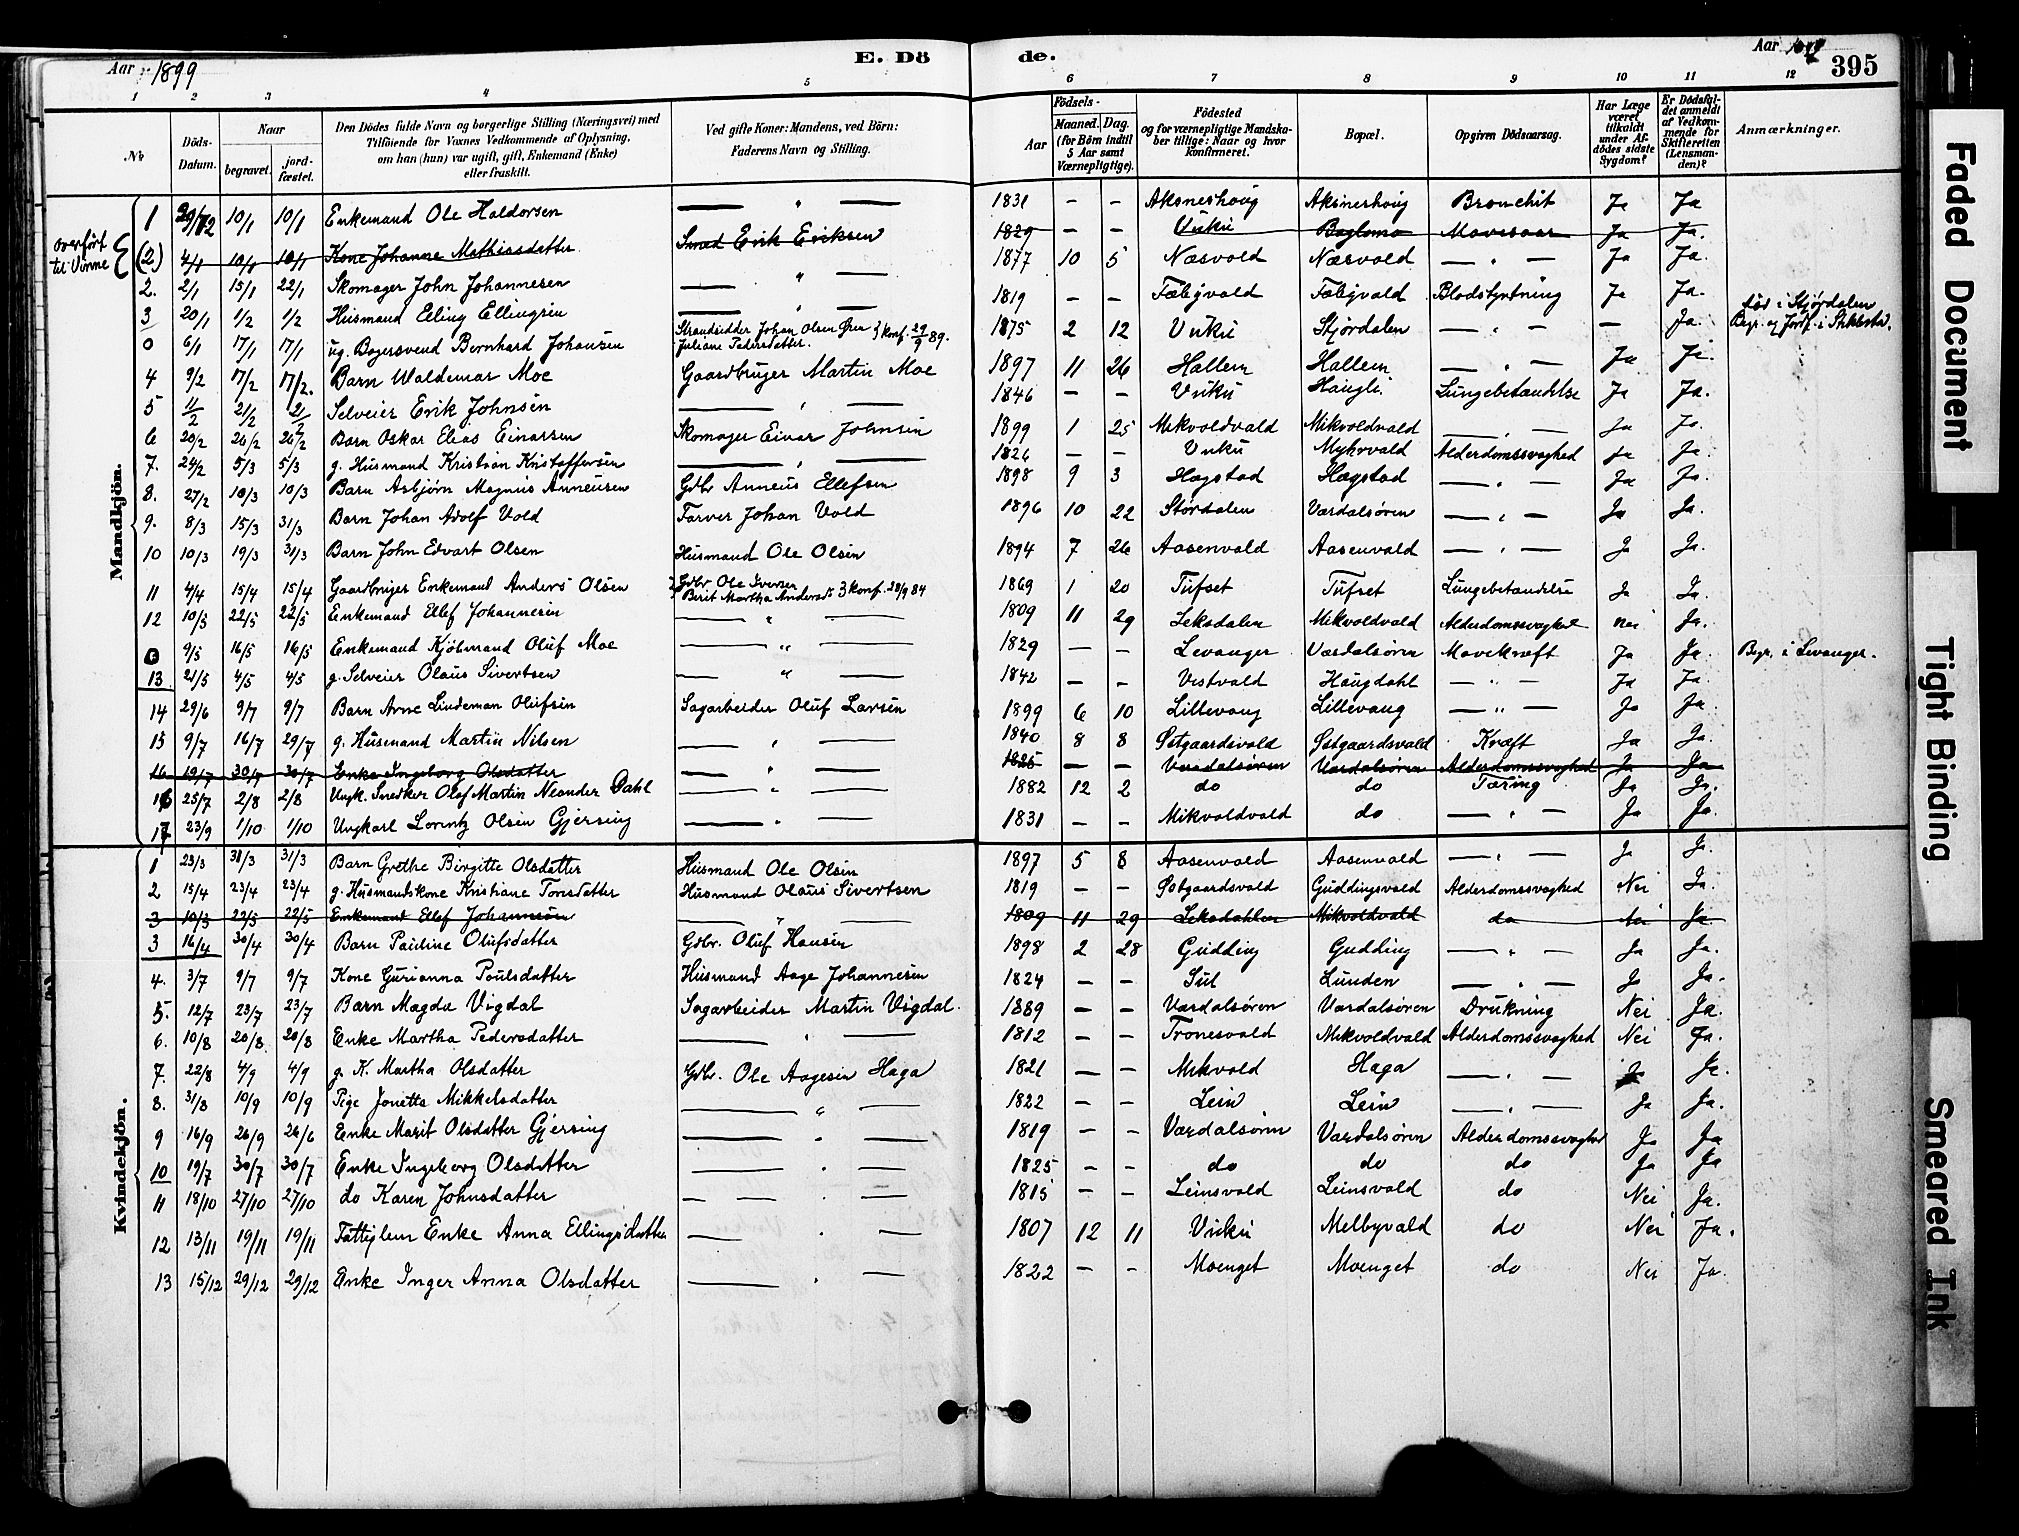 Aar 1899
E. Dö de.
Aar
395
1 2 3 4 5 6 7 8 9 10 11 12
№
Döds-Datum.
Naar
begravet.
jord-fæstet.
Den Dödes fulde Navn og borgerlige Stilling (Næringsvei) med
Tilföiende for Voxnes Vedkommende af Oplysning,
om han (hun) var ugift, gift, Enkemand (Enke)
eller fraskilt.
Ved gifte Koner: Mandens, ved Börn:
Faderens Navn og Stilling.
Födsels-
Aar
Maaned. Dag.
(for Börn indtil 5 Aar samt Værnepligtige).
Födested
og for værnepligtige Mandska-
ber tillige: Naar og hvor
konfirmeret.
Bopæl.
Opgiven Dödsaarsag.
Har Læge været tilkaldt under Af-dödes sidste Sygdom?
Er Dödsfal-det anmeldt af Vedkom-mende for Skifteretten (Lensman-den)?
Anmærkninger.
Mandkjön.
overført til Vinne
1 10/1 10/1 Enkemand Ole Haldorsen — " — 1831 – – Aksneshoug Aksneshoug Bronchit Ja Ja
(2) 4/1 10/1 10/1 Kone Johanne Mathiasdatter Smed Erik Eriksen 1829 – – Vuku Mavesaar Ja Ja.
2. 2/1 15/1 22/1 Skomager John Johannesen — " — 1877 10 5 Næsvold Næsvold — " — Ja Ja.
3 20/1 1/2 1/2 Husmand Elling Ellingsen — " — 1819 – – Fæbyvald Fæbyvald Blodstyrtning Ja Ja.
0 6/1 17/1 17/1 ug. Bagersvend Bernhard Johansen Strandsidder Johan Olsen Juliane Pedersdatter. } konf. 29/9 89. 1875 2 12 Vuku Stjördalen — " — – Ja. död i Stjördalen Begr. og Jordf. i Stiklestad.
4 9/2 17/2 17/2. Barn Waldemar Moe Gaardbruger Martin Moe 1897 11 26 Hallem Hallem — " — Ja Ja.
5 11/2 21/2 21/2 Selveier Erik Johnsen — " — 1846 – – Vuku Haugli. Lungebetændelse Ja Ja.
6 20/2 26/2 26/2 Barn Oskar Elias Einarsen Skomager Einar Johnsen 1899 1 25 Mikvoldvald Mikvoldvald — " — Ja Ja.
7. 24/2 5/3 5/3 g. Husmand Kristian Kristoffersen — " — 1826 – – Vuku Myhrvald Alderdomssvaghed Ja Ja.
8. 27/2 10/3 10/3 Barn Asbjørn Magnus Anneusen Gdbr Anneus Ellefsen 1898 9 3 Hagstad Hagstad — " — Ja Ja.
9. 8/3 15/3 31/3 Barn Johan Adolf Vold Farver Johan Vold 1896 10 22 Stördalen Værdalsøren — " — Ja Ja.
10 10/3 19/3 31/3 Barn John Edvart Olsen Husmand Ole Olsen 1894 7 26 Aasenvald Aasenvald — " — Ja Ja.
11 4/4 15/4 15/4 Gaardbruger Enkemand Anders Olsen Gdbr Ole Iversen Berit Martha Andersd. } konf. 28/9 84 1869 1 20 Tufset Tufset Lungebetændelse Ja Ja.
12 10/5 22/5 22/5 Enkemand Ellef Johannesen — " — 1809 11 29 Leksdalen Mikvoldvald Alderdomssvaghed Nei Ja.
0 9/5 16/5 16/5 Enkemand Kjøbmand Oluf Moe — " — 1829 – – Levanger Værdalsøren Mavekræft Ja Ja. Begr. i Levanger.
13 21/5 4/5 4/5 g. Selveier Olaus Sivertsen — " — 1842 – – Vestvald Haugdahl — " — Ja Ja.
14 29/6 9/7 9/7 Barn Arne Lindeman Olufsen Sagarbeider Oluf Larsen 1899 6 10 Lillevang Lillevang — " — Ja Ja.
15 9/7 16/7 29/7 g. Husmand Martin Nilsen — " — 1840 8 8 Østgaardsvald Østgaardsvald Kræft Ja Ja.
16 19/7 30/7 30/7 Enke Ingeborg Olsdatter — " — 1825 – – Værdalsøren Værdalsøren Alderdomssvaghed Ja Ja
16 25/7 2/8 2/8 Ungk. Snedker Olaf Martin Neander Dahl — " — 1882 12 2 do do Tæring Ja Ja.
17 23/9 1/10 1/10 Ungkarl Lorentz Olsen Gjersing — " — 1831 – – Mikvoldvald do — " — Ja Ja.
Kvindekjön.
1 23/3 31/3 31/3 Barn Grethe Birgitte Olsdatter Husmand Ole Olsen 1897 5 8 Aasenvald Aasenvald — " — Ja Ja.
2 15/4 23/4 23/4 g. Husmandskone Kristiane Tomasdatter Husmand Olaus Sivertsen 1819 – – Østgaardsvald Guddingsvald Alderdomssvaghed Nei Ja.
3 10/3 22/5 22/5 Enkemand Ellef Johannesen — " — 1809 11 29 Leksdahlen Mikvoldvald do Nei Ja
3 16/4 30/4 30/4 Barn Pauline Olufsdatter Gdbr. Oluf Hansen 1898 2 28 Gudding Gudding — " — Ja Ja.
4. 3/7 9/7 9/7 Kone Gurianna Poulsdatter Husmand Aage Johannesen 1824 – – Sul Lunden — " — Ja Ja.
5. 12/7 23/7 23/7 Barn Magda Vigdal Sagarbeider Martin Vigdal. 1889 – – Værdalsøren Værdalsøren Drukning Nei Ja.
6. 10/8 20/8 20/8 Enke Martha Pedersdatter — " — 1812 – – Tronesvald Mikvoldvald Alderdomssvaghed Nei Ja.
7. 22/8 4/9 4/9 g. K. Martha Olsdatter Gdbr. Ole Aagesen Haga 1821 – – Mikvold Haga — " — Ja Ja.
8. 31/8 10/9 10/9 Pige Jonetta Mikkelsdatter — " — 1822 – – Lein Lein — " — Ja Ja.
9 16/9 26/9 26/6 Enke Marit Olsdatter Gjersing — " — 1819 – – Værdalsøren Værdalsøren Alderdomssvaghed Ja Ja
10 19/7 30/7 30/7 Enke Ingeborg Olsdatter — " — 1825 – – do do do Ja Ja
11 18/10 27/10 27/10 do Karen Johnsdatter — " — 1815 – – Leinsvald Leinsvald do Nei Ja.
12 13/11 19/11 19/11 Fattiglem Enke Anna Ellingsdatter — " — 1807 12 11 Vuku Melbyvald do Nei Ja.
13 15/12 29/12 29/12 Enke Inger Anna Olsdatter — " — 1822 – – Moenget Moenget do Nei Ja.
Faded Document
Tight Binding
Smeared Ink